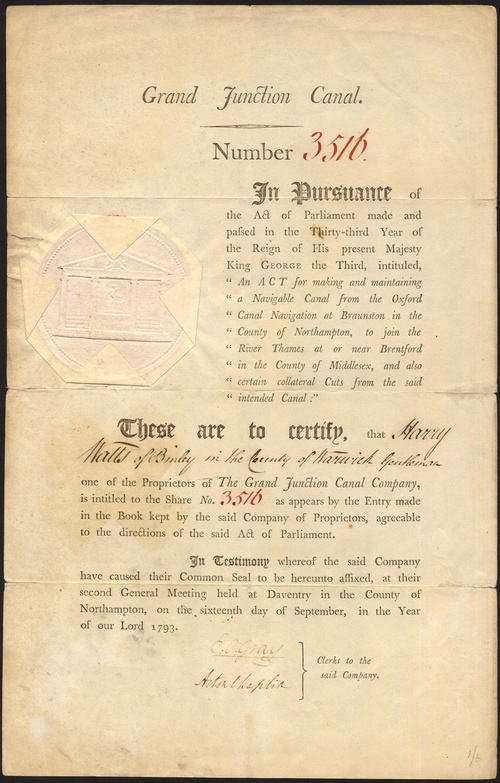 Grand Junction Canal.
Number 3516.
In Pursuance of
the Act of Parliament made and
passed in the Thirty-third Year of
the Reign of His present Majesty
King GEORGE the Third, intituled,
" An ACT for making and maintaining
" a Navigable Canal from the Oxford
" Canal Navigation at Braunston in the
" County of Northampton, to join the
" River Thames at or near Brentford
" in the County of Middlesex, and also
" certain collateral Cuts from the said
" intended Canal:"
These are to certify, that Harry
Watts of Binley in the County of Warwick Gentleman
one of the Proprietors of The Grand Junction Canal Company,
is intitled to the Share No. 3516 as appears by the Entry made
in the Book kept by the said Company of Proprietors, agreeable
to the directions of the said Act of Parliament.
In Testimony whereof the said Company
have caused their Common Seal to be hereunto affixed, at their
second General Meeting held at Daventry in the County of
Northampton, on the sixteenth day of September, in the Year
of our Lord 1793.
Gray
Aston Chaplin
Clerks to the
said Company.